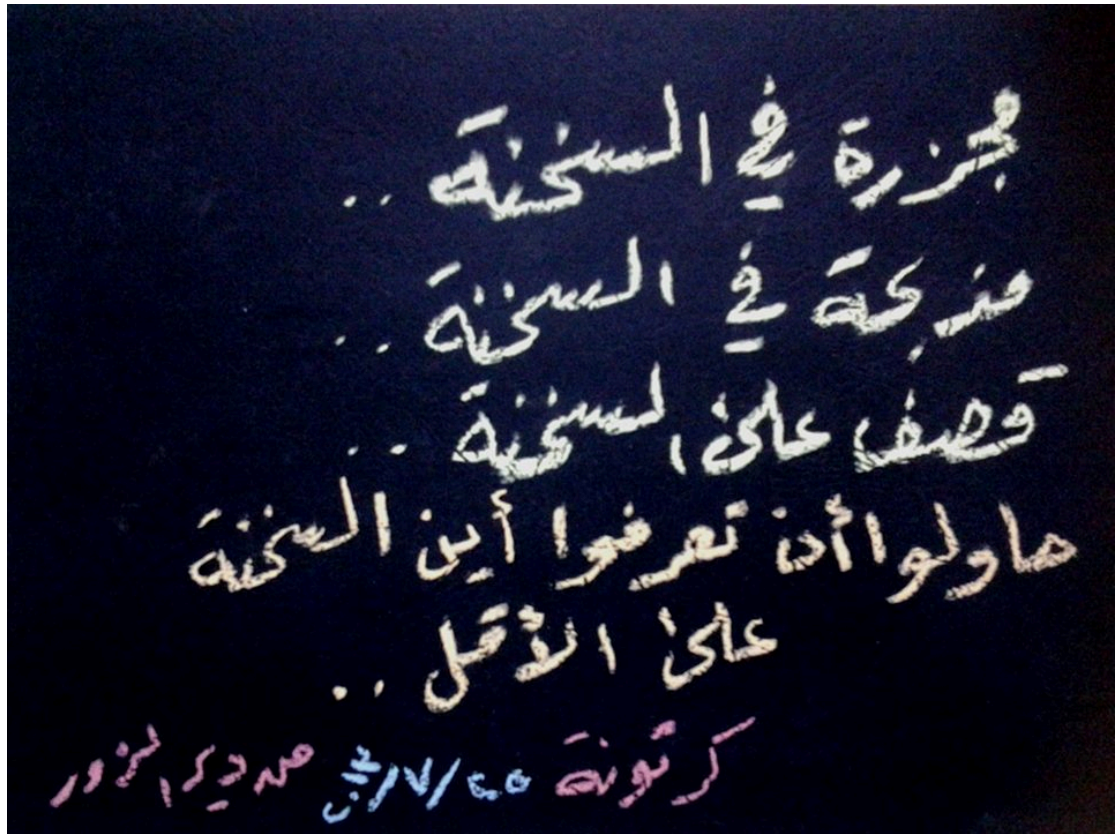 مجزرة في السخنة ..
مذبحة في السخنة ..
قصف على السخنة ..
حاولوا أن تعرفوا أين السخنة
على الأقل ..
كرتونة من دير الزور